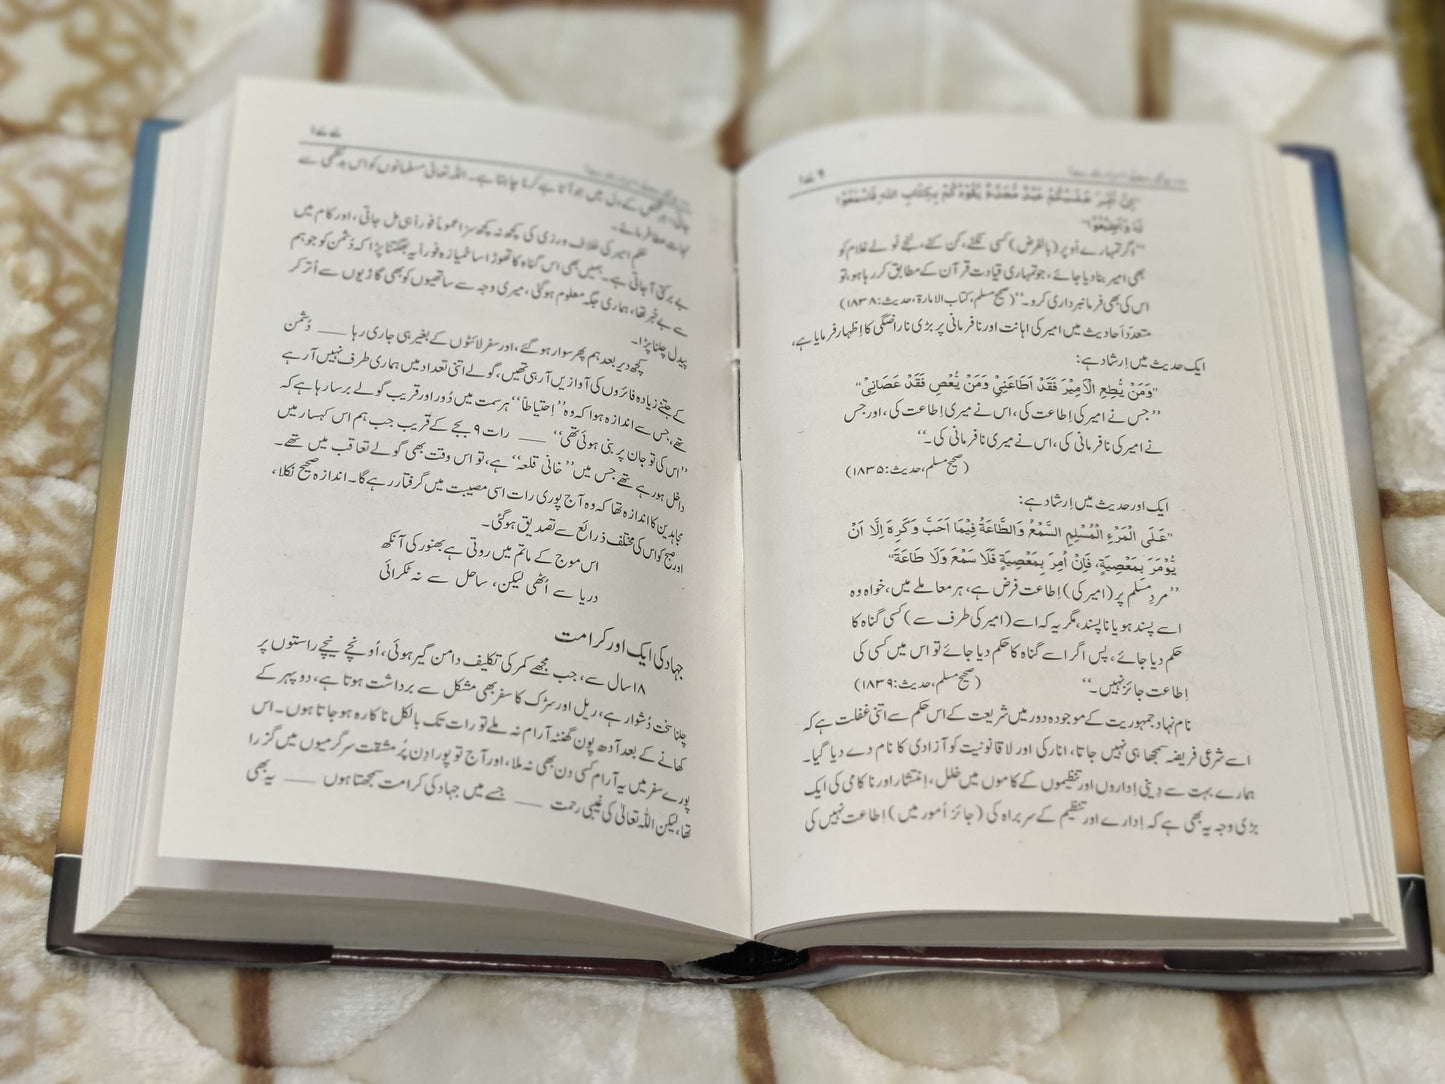 ۱۷۶
"إِنْ أُمِّرَ عَلَيْكُمْ عَبْدٌ مُجَدَّعٌ يَّقُوْدُكُمْ بِكِتَابِ اللهِ فَاسْمَعُوْا
لَهٗ وَاَطِيْعُوْا"
”اگر تمہارے اُوپر (بالفرض) کسی نکٹے، کن کٹے، لنجے ٹولے غلام کو
بھی امیر بنا دیا جائے، جو تمہاری قیادت قرآن کے مطابق کر رہا ہو، تو
اس کی بھی فرمانبرداری کرو۔“ (صحیح مسلم، کتاب الامارۃ، حدیث: ۱۸۳۸)
متعدّد اَحادیث میں امیر کی اہانت اور نافرمانی پر بڑی ناراضگی کا اِظہار فرمایا ہے،
ایک حدیث میں اِرشاد ہے:
"وَمَنْ يُّطِعِ الْاَمِيْرَ فَقَدْ اَطَاعَنِيْ وَمَنْ يَّعْصِ فَقَدْ عَصَانِيْ"
”جس نے امیر کی اِطاعت کی، اس نے میری اِطاعت کی، اور جس
نے امیر کی نافرمانی کی، اس نے میری نافرمانی کی۔“
(صحیح مسلم، حدیث: ۱۸۳۵)
ایک اور حدیث میں اِرشاد ہے:
"عَلَى الْمَرْءِ الْمُسْلِمِ السَّمْعُ وَالطَّاعَةُ فِيْمَا اَحَبَّ وَكَرِهَ اِلَّا اَنْ
يُّؤْمَرَ بِمَعْصِيَةٍ، فَاِنْ اُمِرَ بِمَعْصِيَةٍ فَلَا سَمْعَ وَلَا طَاعَةَ"
”مردِ مسلم پر (امیر کی) اِطاعت فرض ہے، ہر معاملے میں، خواہ وہ
اسے پسند ہو یا ناپسند، مگر یہ کہ اسے (امیر کی طرف سے) کسی گناہ کا
حکم دیا جائے، پس اگر اسے گناہ کا حکم دیا جائے تو اس میں کسی کی
اِطاعت جائز نہیں۔“ (صحیح مسلم، حدیث: ۱۸۳۹)
نام نہاد جمہوریت کے موجودہ دور میں شریعت کے اس حکم سے اتنی غفلت ہے کہ
اسے شرعی فریضہ سمجھا ہی نہیں جاتا، انارکی اور لاقانونیت کو آزادی کا نام دے دیا گیا۔
ہمارے بہت سے دِینی اِداروں اور تنظیموں کے کاموں میں خلل، اِنتشار اور ناکامی کی ایک
بڑی وجہ یہ بھی ہے کہ اِدارے اور تنظیم کے سربراہ کی (جائز اُمور میں) اِطاعت نہیں کی
۱۷۷
جاتی، ہر شخص کے دِل میں جو آتا ہے کرنا چاہتا ہے۔ اللہ تعالیٰ مسلمانوں کو اس بدنظمی سے
نجات عطا فرمائے۔
حکمِ امیر کی خلاف ورزی کی کچھ نہ کچھ سزا عموماً فوراً ہی مل جاتی، اور کام میں
بے برکتی آ جاتی ہے۔ ہمیں بھی اس گناہ کا تھوڑا سا خمیازہ فوراً یہ بھگتنا پڑا کہ دُشمن کو جو ہم
سے بے خبر تھا، ہماری جگہ معلوم ہوگئی، میری وجہ سے ساتھیوں کو بھی گاڑیوں سے اُتر کر
پیدل چلنا پڑا۔
کچھ دیر بعد ہم پھر سوار ہوگئے، اور سفر لائٹوں کے بغیر ہی جاری رہا ـــــ دُشمن
کے جتنے زیادہ فائروں کی آوازیں آ رہی تھیں، گولے اتنی تعداد میں ہماری طرف نہیں آ رہے
تھے، جس سے اندازہ ہوا کہ وہ ”اِحتیاطاً“ ہر سمت میں دُور اور قریب گولے برسا رہا ہے کہ
”اس کی تو جان پر بنی ہوئی تھی“ ـــــ رات ۹ بجے کے قریب جب ہم اس کہسار میں
داخل ہو رہے تھے جس میں ”خانی قلعہ“ ہے، تو اس وقت بھی گولے تعاقب میں تھے۔
مجاہدین کا اندازہ تھا کہ وہ آج پوری رات اسی مصیبت میں گرفتار رہے گا۔ اندازہ صحیح نکلا،
اور صبح کو اس کی مختلف ذرائع سے تصدیق ہوگئی۔
اس موج کے ماتم میں روتی ہے بھنور کی آنکھ
دریا سے اُٹھی لیکن، ساحل سے نہ ٹکرائی
جہاد کی ایک اور کرامت
۱۸ سال سے، جب مجھے کمر کی تکلیف دامن گیر ہوئی، اُونچے نیچے راستوں پر
چلنا سخت دُشوار ہے، ریل اور سڑک کا سفر بھی مشکل سے برداشت ہوتا ہے، دوپہر کے
کھانے کے بعد آدھ پون گھنٹہ آرام نہ ملے تو رات تک بالکل ناکارہ ہو جاتا ہوں۔ اس
پورے سفر میں یہ آرام کسی دن بھی نہ ملا، اور آج تو پورا دِن پُرمشقت سرگرمیوں میں گزرا
تھا، لیکن اللہ تعالیٰ کی غیبی رحمت ـــــ جسے میں جہاد کی کرامت سمجھتا ہوں ـــــ یہ بھی